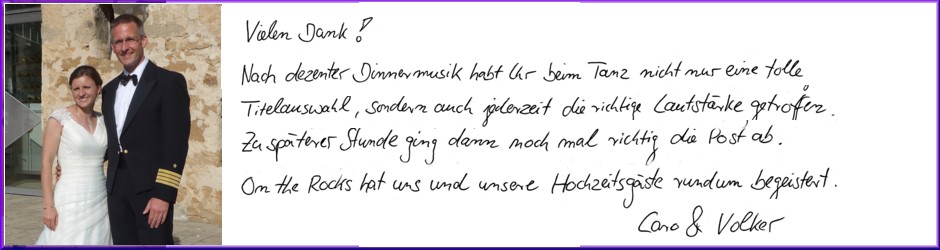 Vielen Dank!
Nach dezenter Dinnermusik habt Ihr beim Tanz nicht nur eine tolle
Titelauswahl, sondern auch jederzeit die richtige Lautstärke getroffen.
Zu späterer Stunde ging dann noch mal richtig die Post ab.
On the Rocks hat uns und unsere Hochzeitsgäste rundum begeistert.
Caro & Volker